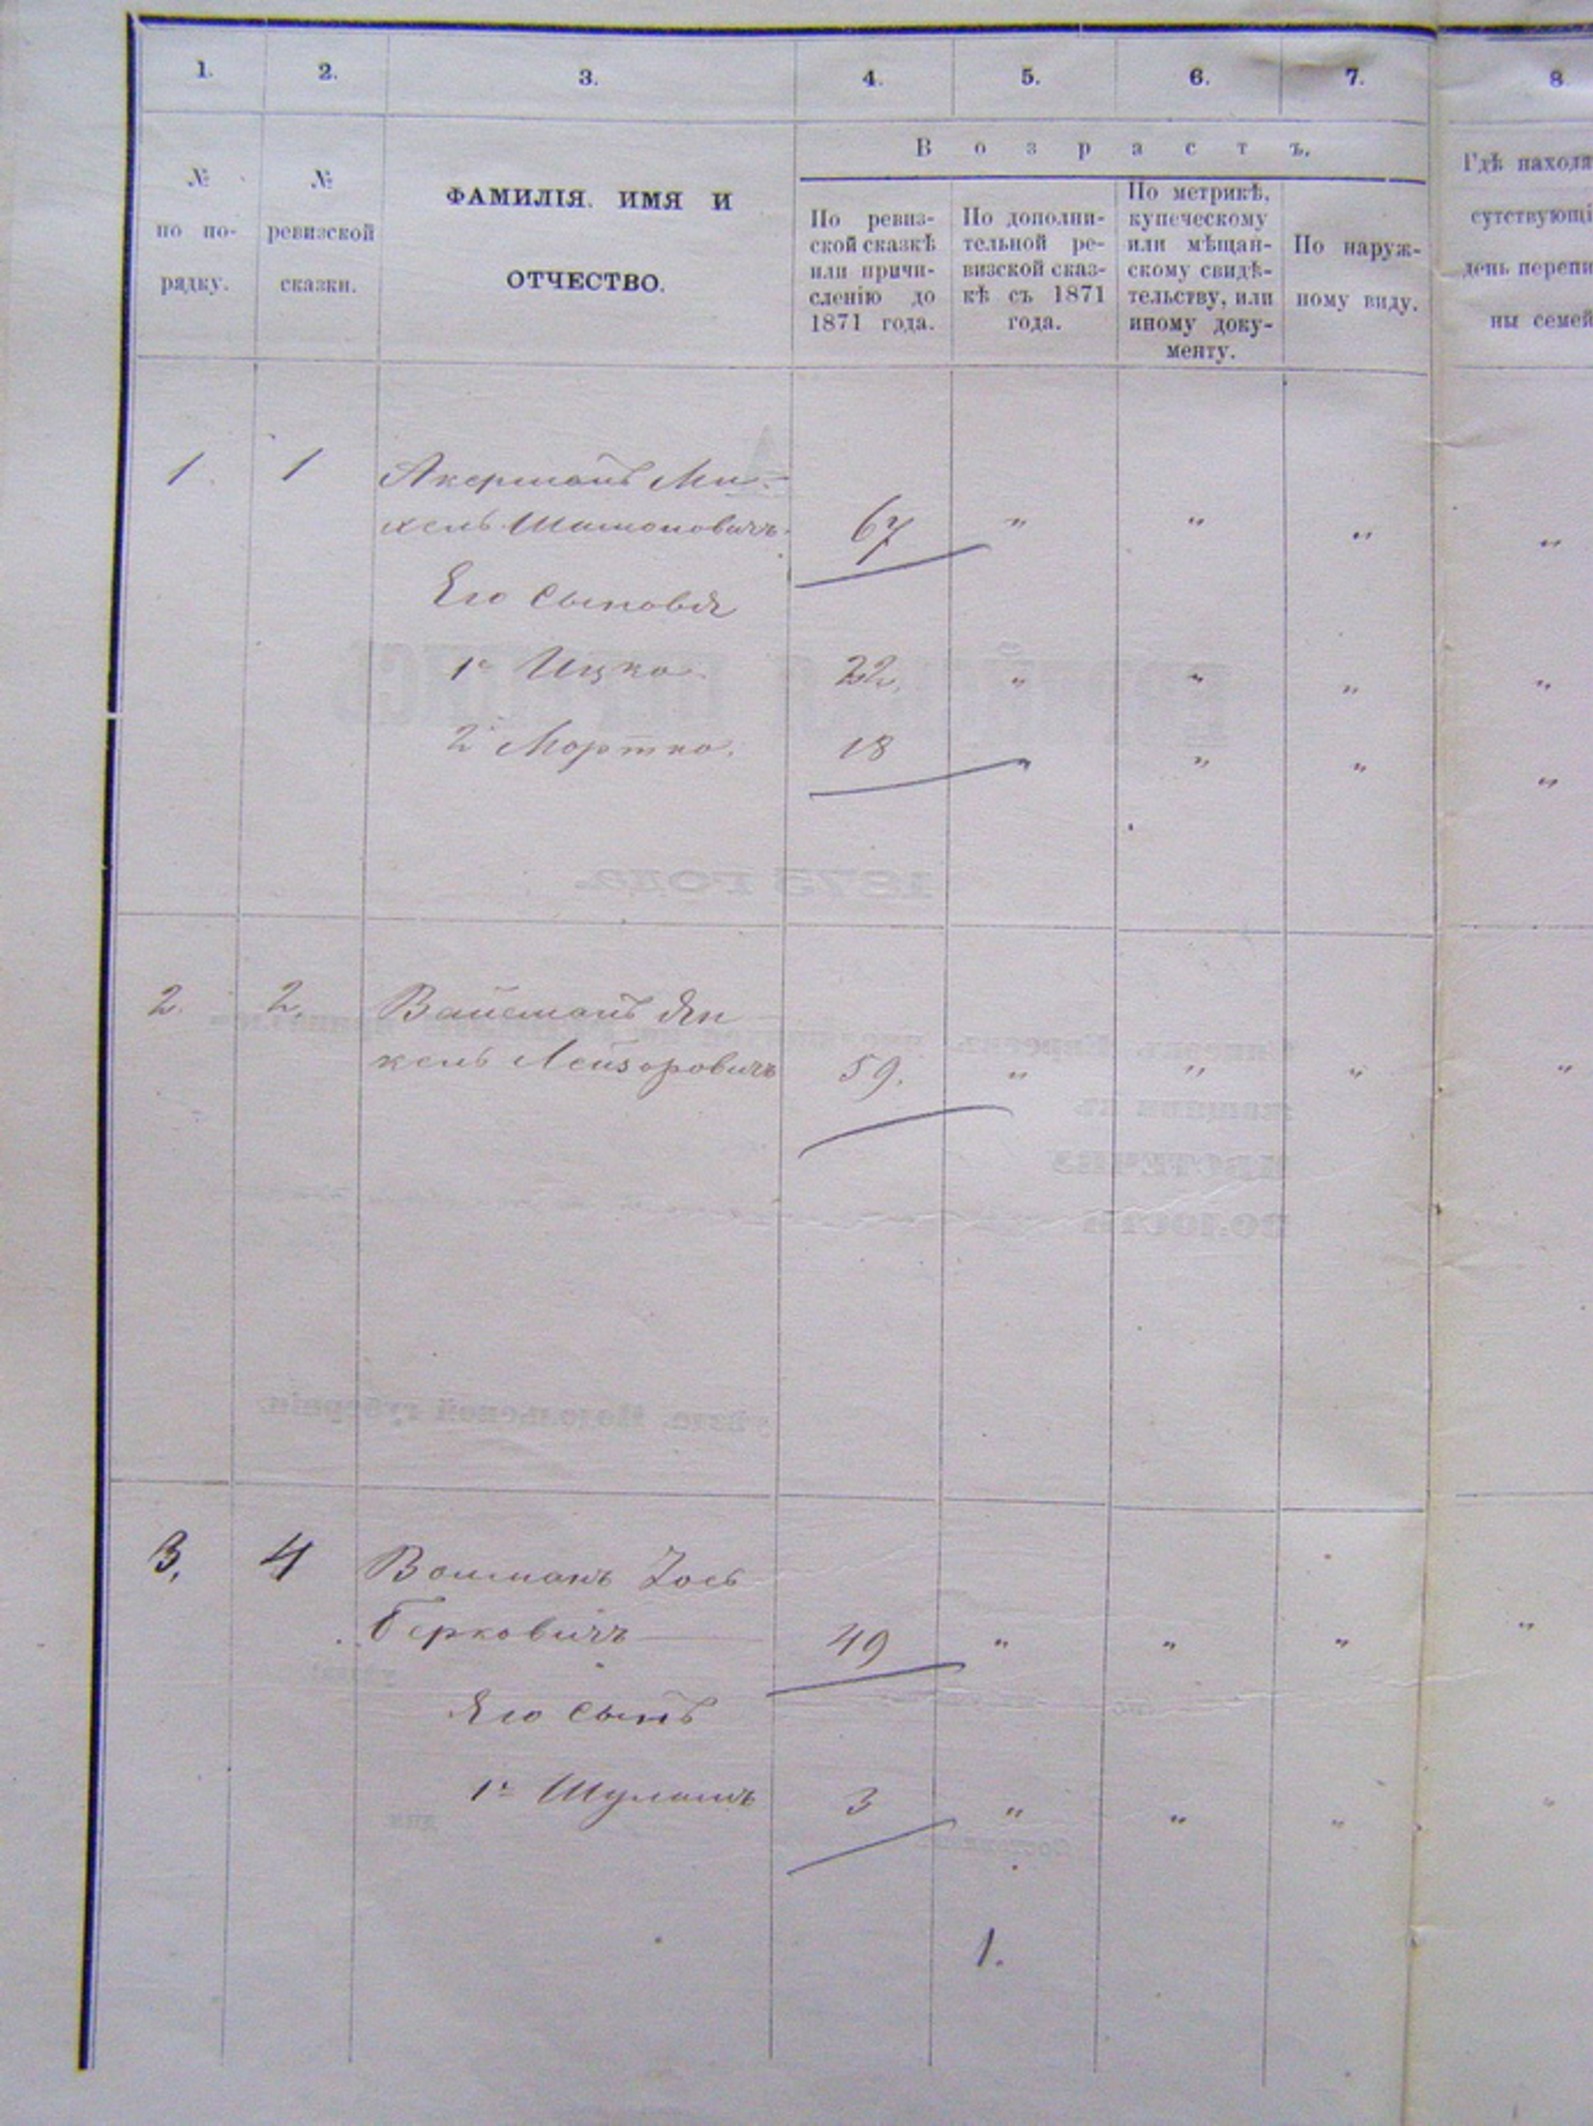 1. 2. 3. 4. 5. 6. 7. 8
В о з р а с т ъ.
№ по по-рядку.
№ ревизской сказки.
ФАМИЛІЯ. ИМЯ И
ОТЧЕСТВО.
По ревиз-
ской сказкѣ
или причи-
сленію до
1871 года.
По дополни-
тельной ре-
визской сказ-
кѣ съ 1871
года.
По метрикѣ,
купеческому
или мѣщан-
скому свидѣ-
тельству, или
иному доку-
менту.
По наруж-
ному виду.
Гдѣ находя
сутствующі
день перепи
ны семей
1 1 Акерманъ Ми-
хель Шимоновичъ 67 " " " "
Его сыновья
1й Ицко 22, " " " "
2й Мортко. 18 " " " "
2. 2, Вайсманъ Ян
кель Лейзоровичъ 59. " " " "
3, 4 Вайманъ Іось
Берковичъ 49 " " " "
Его сынъ
1й Шулимъ 3 " " " "
1.